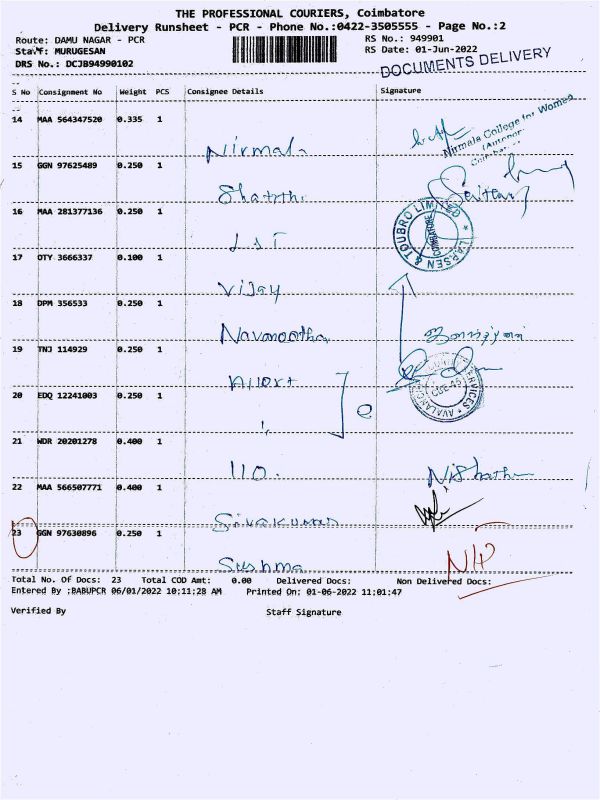 THE PROFESSIONAL COURIERS, Coimbatore
Delivery Runsheet - PCR - Phone No.:0422-3505555 - Page No.:2
Route: DAMU NAGAR - PCR RS No.: 949901
Staff: MURUGESAN RS Date: 01-Jun-2022
DRS No.: DCJB94990102
DOCUMENTS DELIVERY
S No Consignment No Weight PCS Consignee Details Signature
14 MAA 564347520 0.335 1
Nirmala
Nirmala College for Women
15 GGN 97625489 0.250 1
Shakthi
16 MAA 281377136 0.250 1
L&T
LARSEN & TOUBRO LIMITED
COIMBATORE
17 OTY 3666337 0.100 1
Vijay
18 DPM 356533 0.250 1
Navaneetha
19 TNJ 114929 0.250 1
20 EDQ 12241003 0.250 1
CBE 45
21 WDR 20201278 0.400 1
22 MAA 566507771 0.400 1
Sivakumar
23 GGN 97630896 0.250 1
Sushma
Total No. Of Docs: 23 Total COD Amt: 0.00 Delivered Docs: Non Delivered Docs:
Entered By :BABUPCR 06/01/2022 10:11:28 AM Printed On: 01-06-2022 11:01:47
Verified By Staff Signature